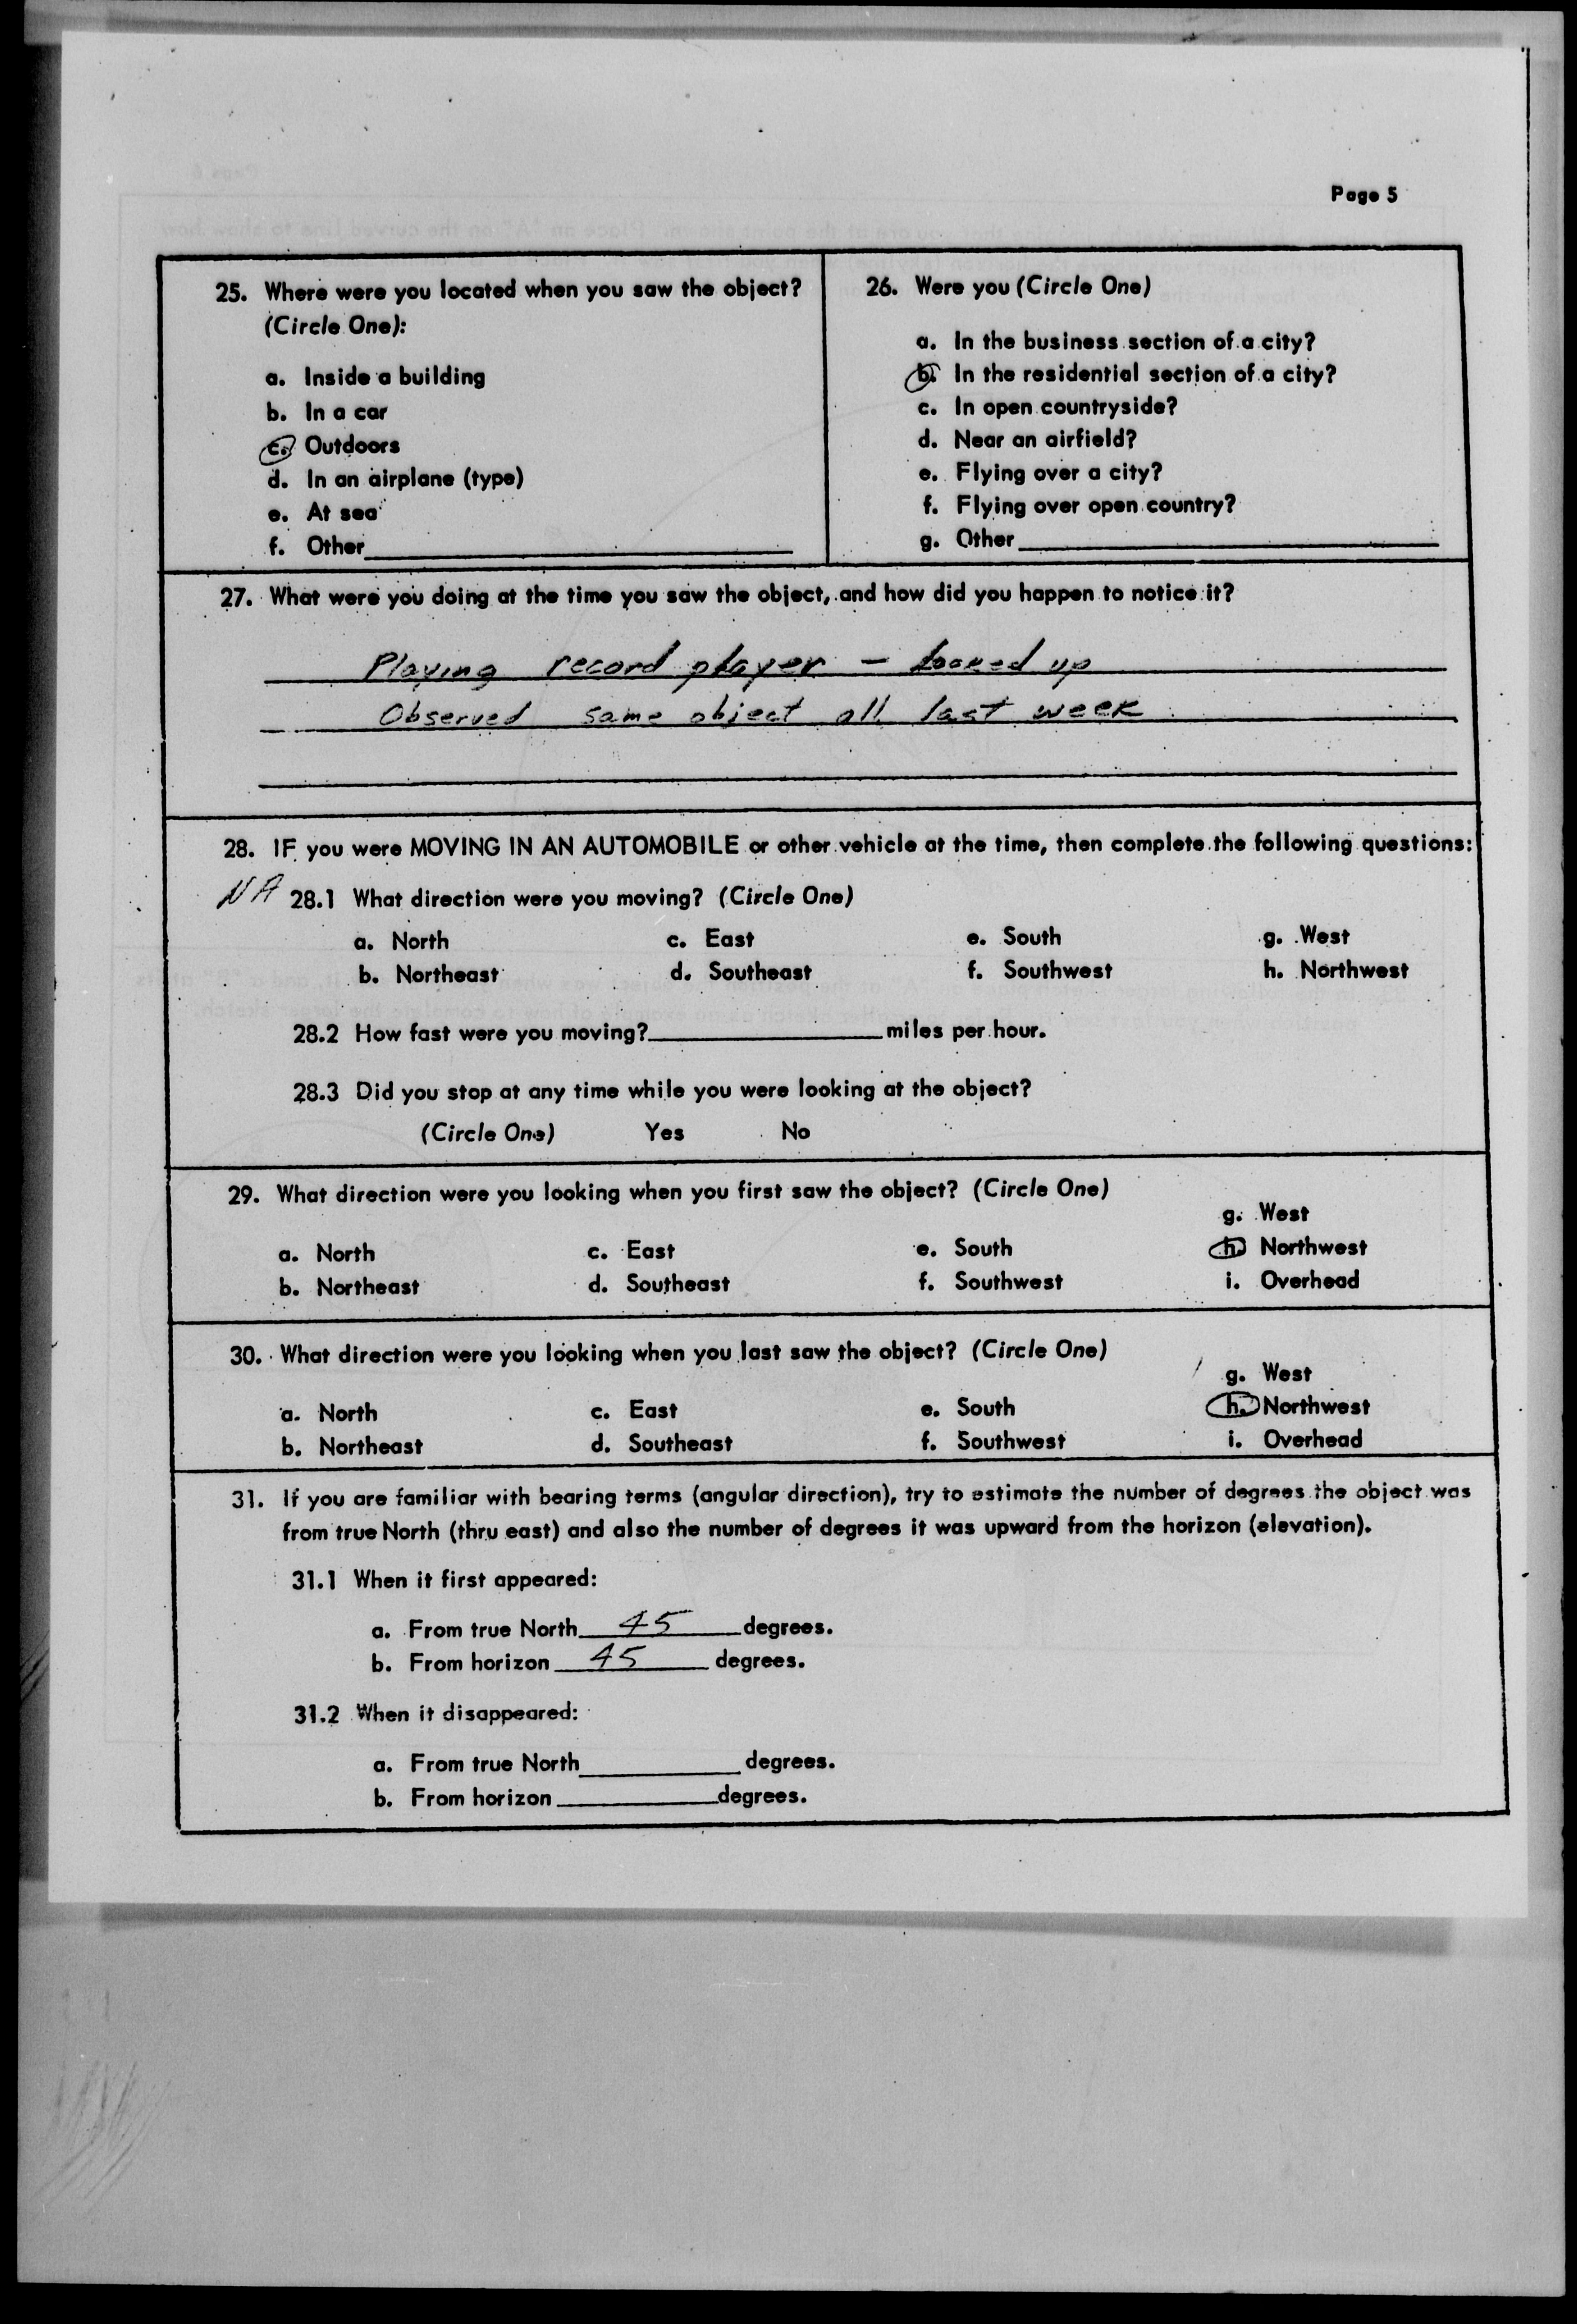 Page 5
25. Where were you located when you saw the object?
(Circle One):
a. Inside a building
b. In a car
c. Outdoors
d. In an airplane (type)
e. At sea
f. Other
26. Were you (Circle One)
a. In the business section of a city?
b. In the residential section of a city?
c. In open countryside?
d. Near an airfield?
e. Flying over a city?
f. Flying over open country?
g. Other
27. What were you doing at the time you saw the object, and how did you happen to notice it?
Playing record player – looked up
Observed same object all last week
28. IF you were MOVING IN AN AUTOMOBILE or other vehicle at the time, then complete the following questions:
NA 28.1 What direction were you moving? (Circle One)
a. North c. East e. South g. West
b. Northeast d. Southeast f. Southwest h. Northwest
28.2 How fast were you moving? miles per hour.
28.3 Did you stop at any time while you were looking at the object?
(Circle One) Yes No
29. What direction were you looking when you first saw the object? (Circle One)
g. West
a. North c. East e. South h. Northwest
b. Northeast d. Southeast f. Southwest i. Overhead
30. What direction were you looking when you last saw the object? (Circle One)
g. West
a. North c. East e. South h. Northwest
b. Northeast d. Southeast f. Southwest i. Overhead
31. If you are familiar with bearing terms (angular direction), try to estimate the number of degrees the object was
from true North (thru east) and also the number of degrees it was upward from the horizon (elevation).
31.1 When it first appeared:
a. From true North 45 degrees.
b. From horizon 45 degrees.
31.2 When it disappeared:
a. From true North degrees.
b. From horizon degrees.